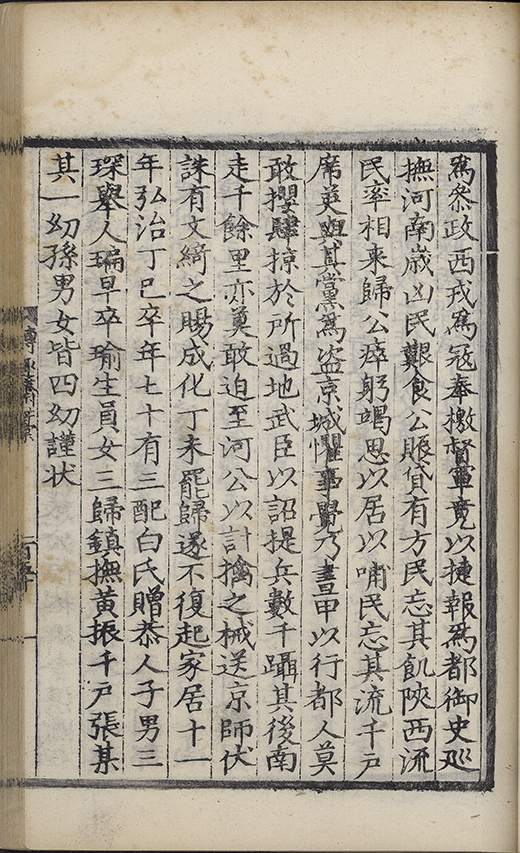 爲叅政西戎爲寇奉檄督軍竟以捷報爲都御史廵
撫河南歳凶民艱食公賬貸有方民忘其飢陜西流
民率相来歸公瘁躬竭思以居以哺民忘其流千戸
席英與其黨爲盗京城懼事覺乃晝甲以行都人莫
敢攖肆掠於所過地武臣以詔提兵數千躡其後南
走千餘里亦莫敢迫至河公以計擒之械送京師伏
誅有文綺之賜成化丁未罷歸遂不復起家居十一
年弘治丁巳卒年七十有三配白氏贈恭人子男三
琛舉人瑞早卒瑜生員女三歸鎮撫黄振千戸張某
其一㓜孫男女皆四㓜謹状